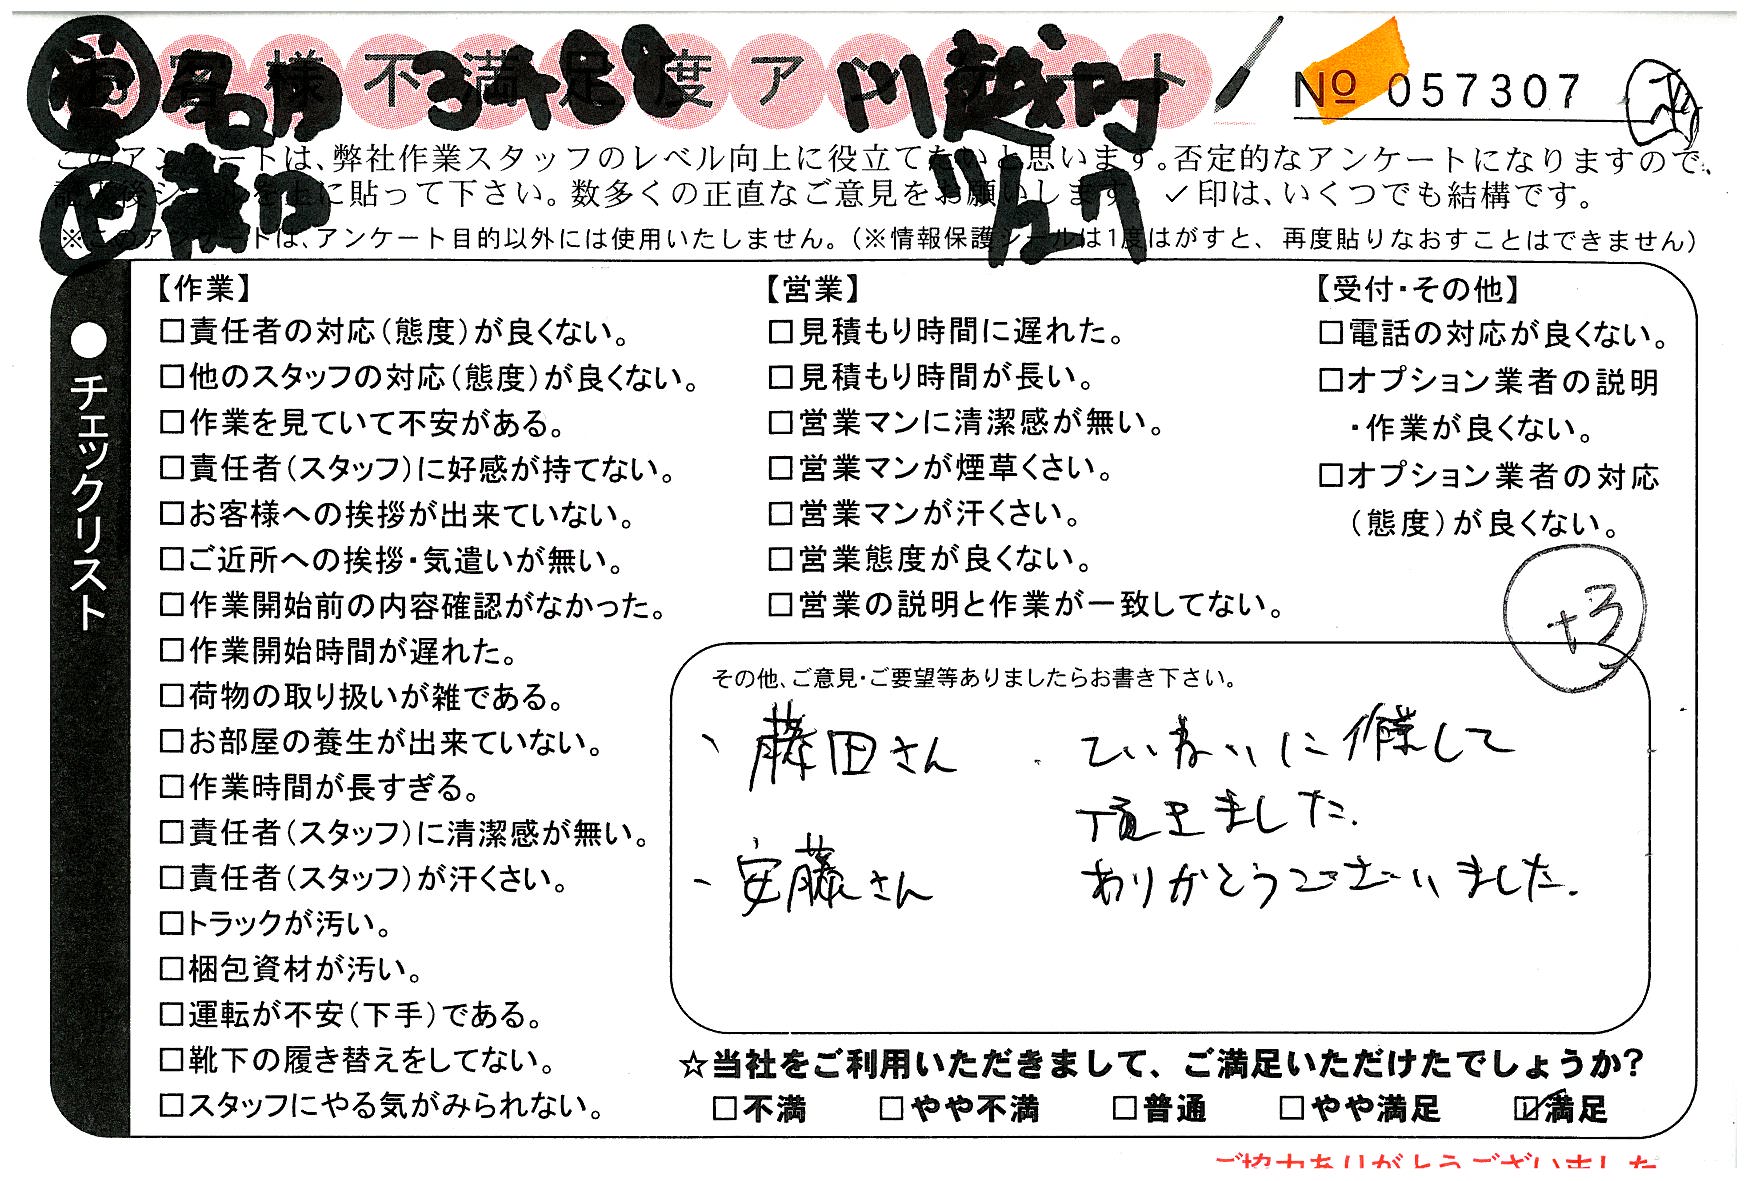 お客様不満足度アンケート
No 057307
川越町
このアンケートは、弊社作業スタッフのレベル向上に役立てたいと思います。否定的なアンケートになりますので、
記入後シールを上に貼って下さい。数多くの正直なご意見をお願いします。✓印は、いくつでも結構です。
※このアンケートは、アンケート目的以外には使用いたしません。（※情報保護シールは1度はがすと、再度貼りなおすことはできません）
●チェックリスト
【作業】
□責任者の対応（態度）が良くない。
□他のスタッフの対応（態度）が良くない。
□作業を見ていて不安がある。
□責任者（スタッフ）に好感が持てない。
□お客様への挨拶が出来ていない。
□ご近所への挨拶・気遣いが無い。
□作業開始前の内容確認がなかった。
□作業開始時間が遅れた。
□荷物の取り扱いが雑である。
□お部屋の養生が出来ていない。
□作業時間が長すぎる。
□責任者（スタッフ）に清潔感が無い。
□責任者（スタッフ）が汗くさい。
□トラックが汚い。
□梱包資材が汚い。
□運転が不安（下手）である。
□靴下の履き替えをしてない。
□スタッフにやる気がみられない。
【営業】
□見積もり時間に遅れた。
□見積もり時間が長い。
□営業マンに清潔感が無い。
□営業マンが煙草くさい。
□営業マンが汗くさい。
□営業態度が良くない。
□営業の説明と作業が一致してない。
【受付・その他】
□電話の対応が良くない。
□オプション業者の説明
・作業が良くない。
□オプション業者の対応
（態度）が良くない。
+3
その他、ご意見・ご要望等ありましたらお書き下さい。
、藤田さん ていねいに作業して
頂きました.
、安藤さん ありがとうございました.
☆当社をご利用いただきまして、ご満足いただけたでしょうか?
□不満 □やや不満 □普通 □やや満足 ☑満足
ご協力ありがとうございました